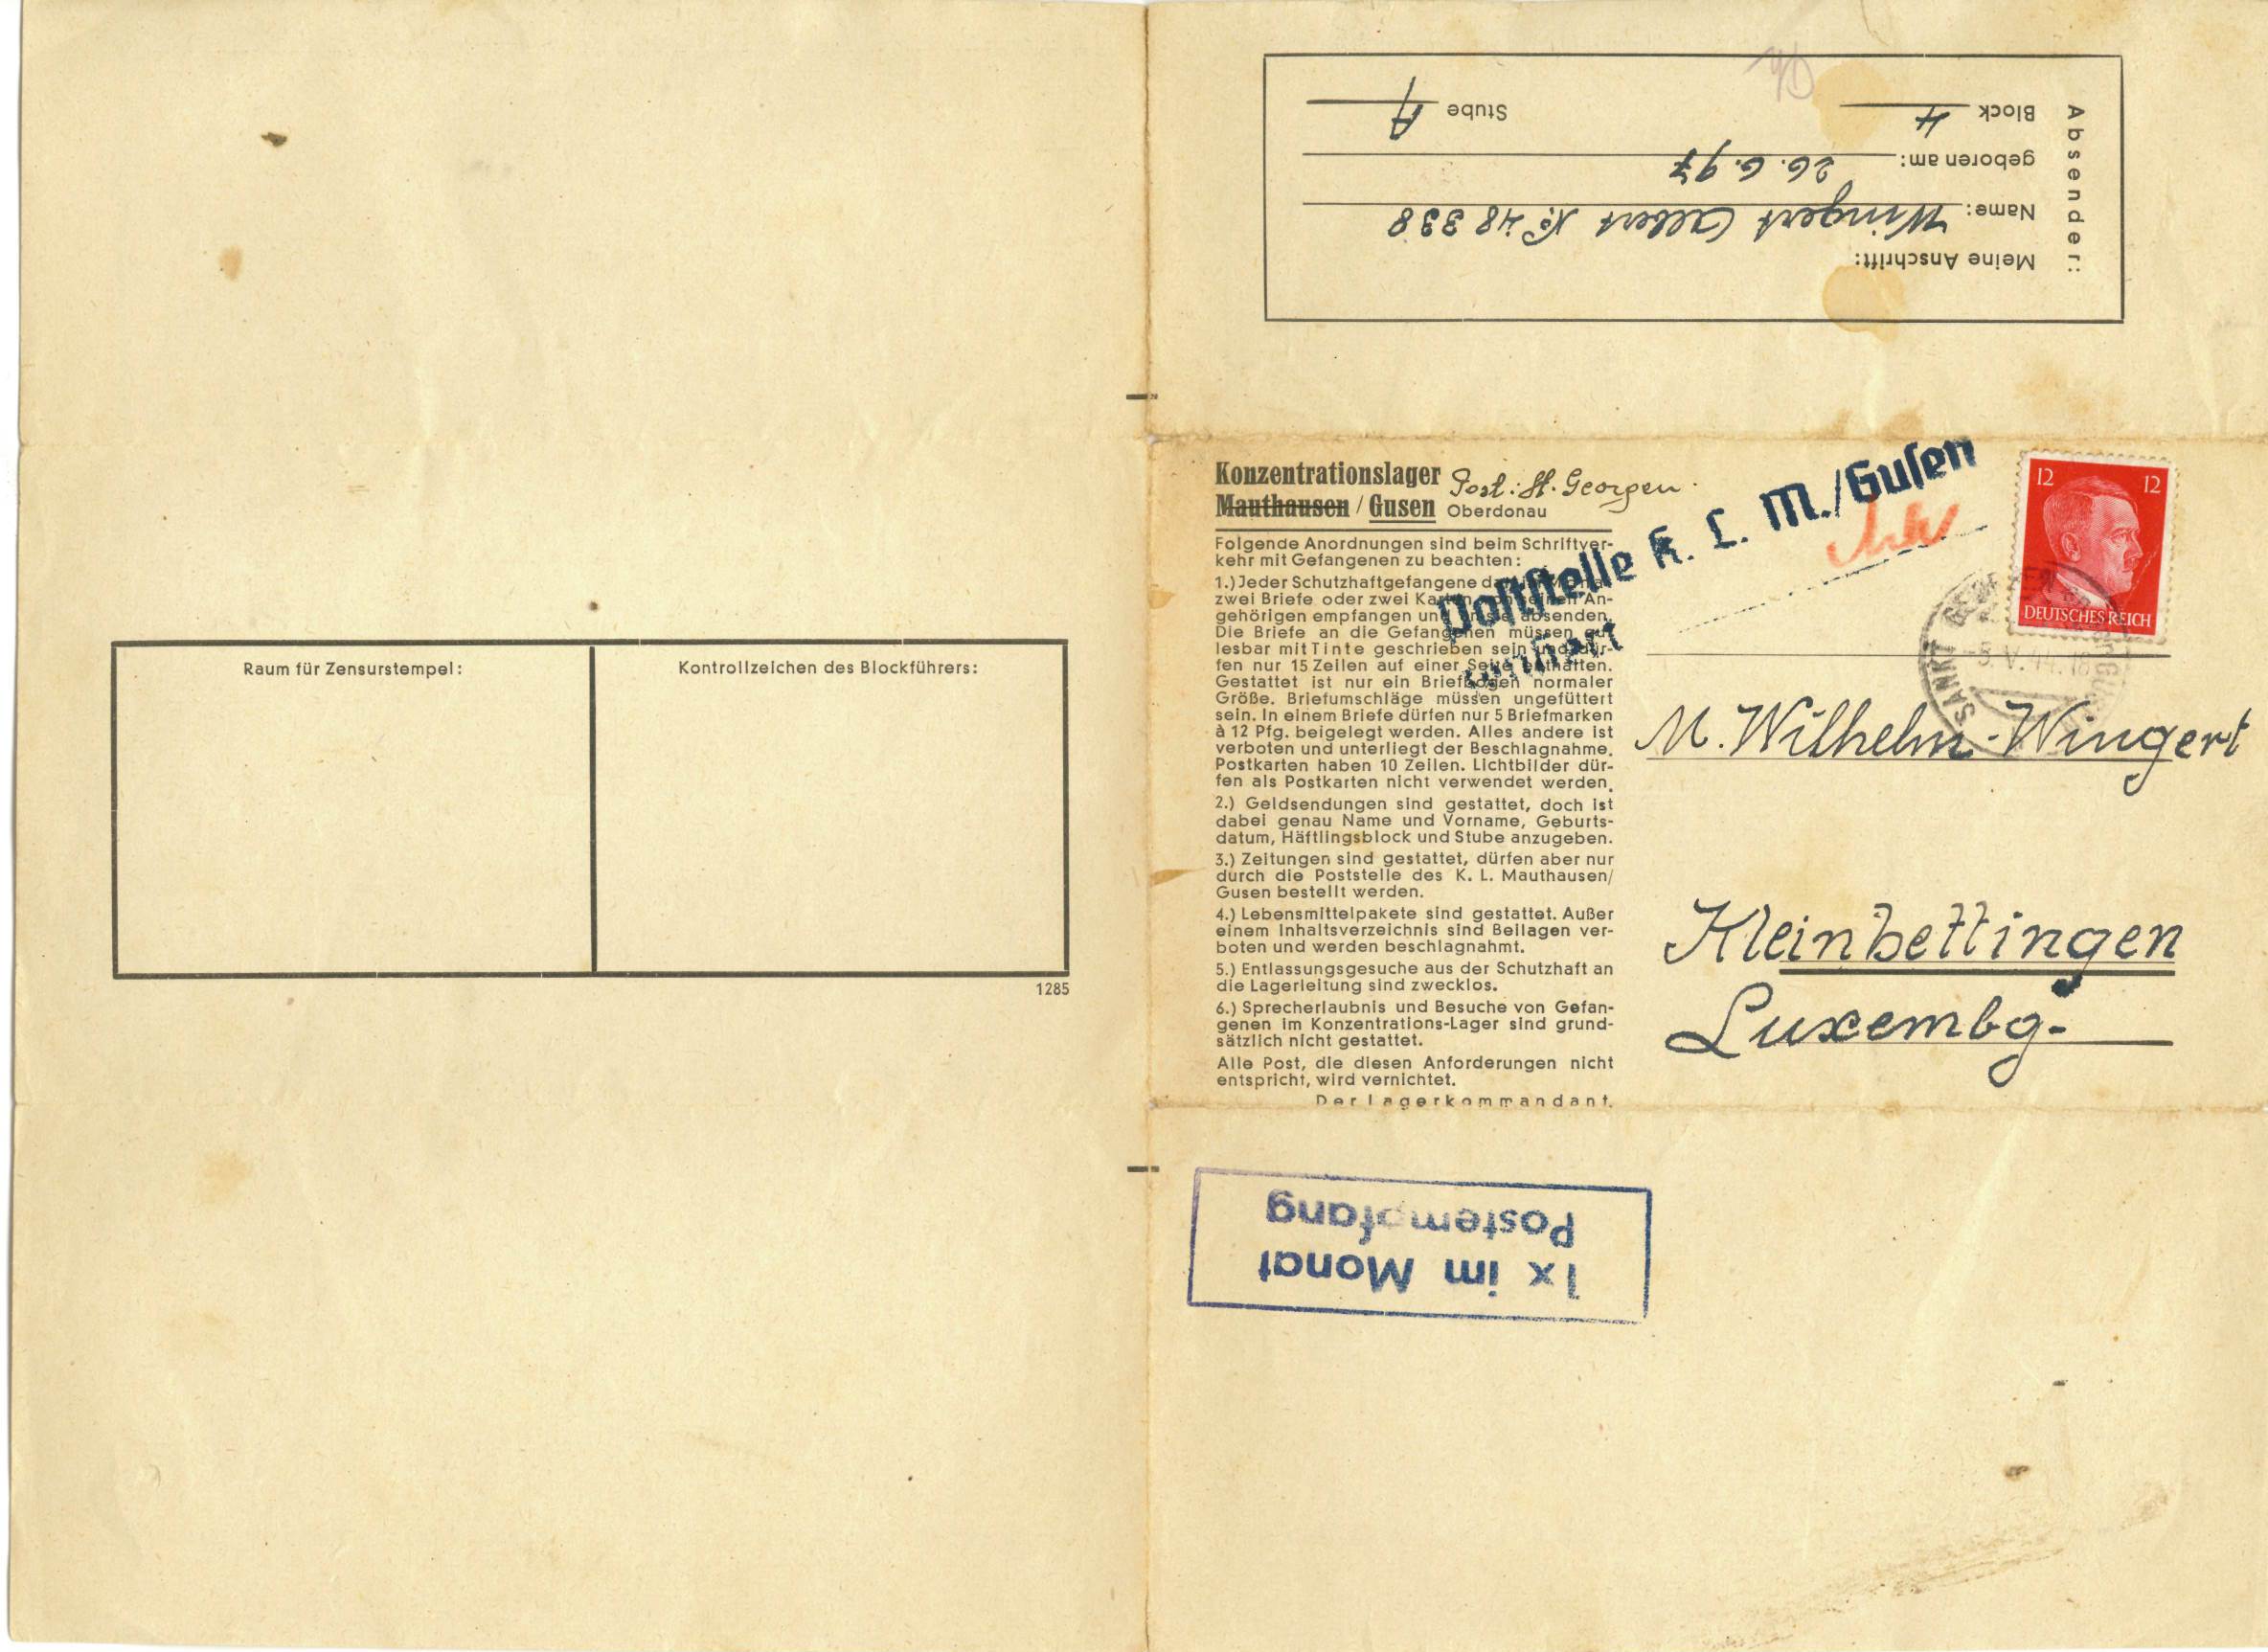 Absender:
Meine Anschrift:
Name: Wingert Albert No 48338
geboren am: 26. 6. 97
Block 4 Stube A
Konzentrationslager Post: St. Georgen
Mauthausen / Gusen Oberdonau
Folgende Anordnungen sind beim Schriftver-
kehr mit Gefangenen zu beachten:
1.) Jeder Schutzhaftgefangene darf im Monat
zwei Briefe oder zwei Karten von seinen An-
gehörigen empfangen und an sie absenden.
Die Briefe an die Gefangenen müssen gut
lesbar mit Tinte geschrieben sein und dür-
fen nur 15 Zeilen auf einer Seite enthalten.
Gestattet ist nur ein Briefbogen normaler
Größe. Briefumschläge müssen ungefüttert
sein. In einem Briefe dürfen nur 5 Briefmarken
à 12 Pfg. beigelegt werden. Alles andere ist
verboten und unterliegt der Beschlagnahme.
Postkarten haben 10 Zeilen. Lichtbilder dür-
fen als Postkarten nicht verwendet werden.
2.) Geldsendungen sind gestattet, doch ist
dabei genau Name und Vorname, Geburts-
datum, Häftlingsblock und Stube anzugeben.
3.) Zeitungen sind gestattet, dürfen aber nur
durch die Poststelle des K. L. Mauthausen/
Gusen bestellt werden.
4.) Lebensmittelpakete sind gestattet. Außer
einem Inhaltsverzeichnis sind Beilagen ver-
boten und werden beschlagnahmt.
5.) Entlassungsgesuche aus der Schutzhaft an
die Lagerleitung sind zwecklos.
6.) Sprecherlaubnis und Besuche von Gefan-
genen im Konzentrations-Lager sind grund-
sätzlich nicht gestattet.
Alle Post, die diesen Anforderungen nicht
entspricht, wird vernichtet.
Der Lagerkommandant.
Poststelle K. L. M./Gusen
zensiert
12 12
DEUTSCHES REICH
SANKT GEORGEN
V. 44. 18
M. Wilhelm-Wingert
Kleinbettingen
Luxembg-
Raum für Zensurstempel:
Kontrollzeichen des Blockführers:
1285
1x im Monat
Postempfang